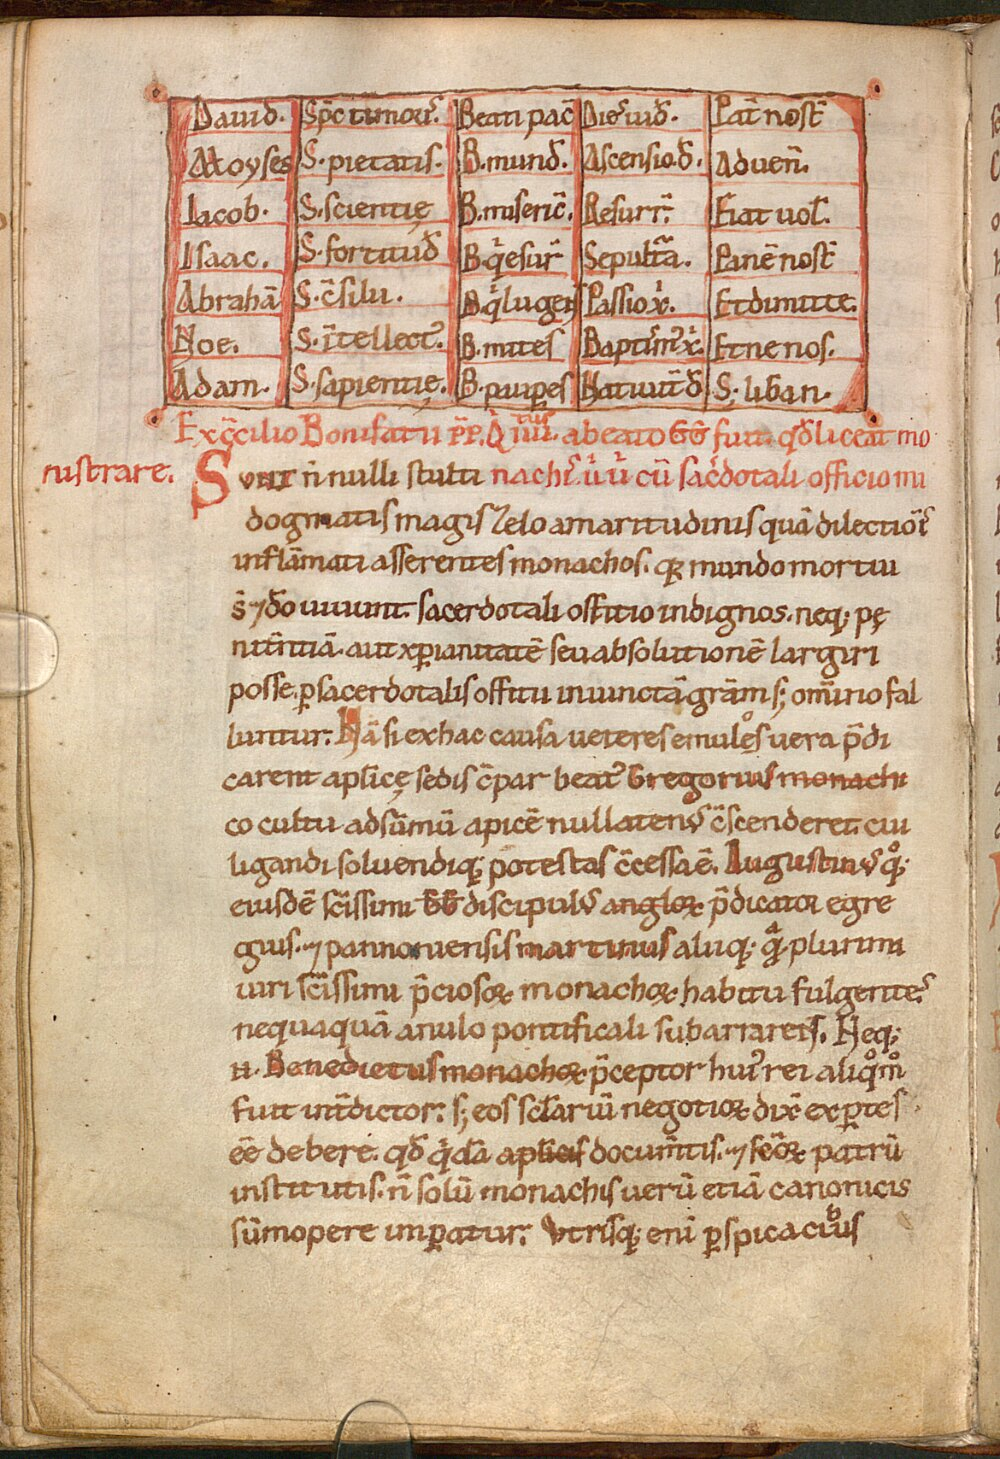 Dauid. Sp̄c timoriˢ. Beati pac̄ Dieˢ iud̄. Pat̄ nost̄
Moyses S. pietatis. B. mund̄. Ascensio d̄. Aduen̄.
Iacob. S. scientię B. miseric̄. Resurr̄. Fiat uol̄.
Isaac. S. fortitud̄ B. q̇ esur̄ Sepult̄a. Panē nost̄
Abrahā S. c̄silii. B. q̇ lugen̄ Passio x̄. Et dimitte.
Noe. S. ītellect᾿. B. mites Baptim᾿ x̄. Et ne nos.
Adam. S. sapientię. B. paup̱es Natiuit̄ d̄ S; liban.
Ex c̄cilio Bonifatii pp̄. Q̇ iiii᾿tus. a beato GḠ fuit. qd̄ liceat mo
nistrare. Sunt n̄ nulli stulti nachiˢ. ůů cū sac̄dotali officio mi
dogmatis magis zelo amaritudinis quā dilectiōiˢ
inflāmati asserentes monachos. qꝛ mundo mortui
s̄ ⁊ d̄o uiuunt. sacerdotali offitio indignos. neq; pę
nitn̄tiā. aut xp̱ianitatē seu absolutionē largiri
posse. p̱ sacerdotalis offitii iniunctā gr̄am s; om̄ino fal
luntur. Nā si ex hac causa ueteres emulos uera p̄di
carent ap̄licę sedis c̄par beat᾿ Gregorius monachi
co cultu ad sūmū apicē nullaten᾿ c̄scenderet. cui
ligandi soluendiq; potestas c̄cessa ē. Augustin᾿ q̊;
eiusdē sc̄issimi GḠ discipul᾿ angloꝝ p̄dicator egre
gius. ⁊ pannoniensis martinus aliiq; q̇ plurimi
uiri sc̄issimi p̄ciosoꝝ monachoꝝ habitu fulgenteˢ
nequaquā anulo pontificali subarrarent̄. Neq;
n̄. Benedictus monachoꝝ p̄ceptor hui᾿ rei aliq̊m̊
fuit int̄dictor: s; eos sc̄lariū negotioꝝ dix̄ exp̱tes
eē debere. qd̄ q̇dā ap̄licis documn̄tis. ⁊ sc̄oꝝ patrū
institutis. n̄ solū monachis uerū etiā canonicis
sūmopere imp̱atur: Vtrisq; enī p̱spicacib᾿